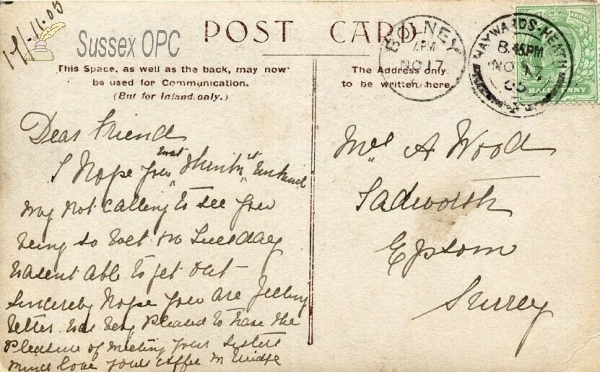 17/11.05
Sussex OPC
POST CARD
This Space, as well as the back, may now
be used for Communication.
(But for Inland only.)
The Address only
to be written here.
BOLNEY
7 PM
NO 17
HAYWARDS-HEATH
8.45PM
NO 17
05
HALFPENNY
Dear Friend
I Hope you wont think it unkind
my not calling to see you
being so wet on Tuesday
wasent able to get out
Sincerely hope you are feeling
better. was very pleased to have the
pleasure of meeting your Sisters
love yours
Mrs A Wood
Tadworth
Epsom
Surrey